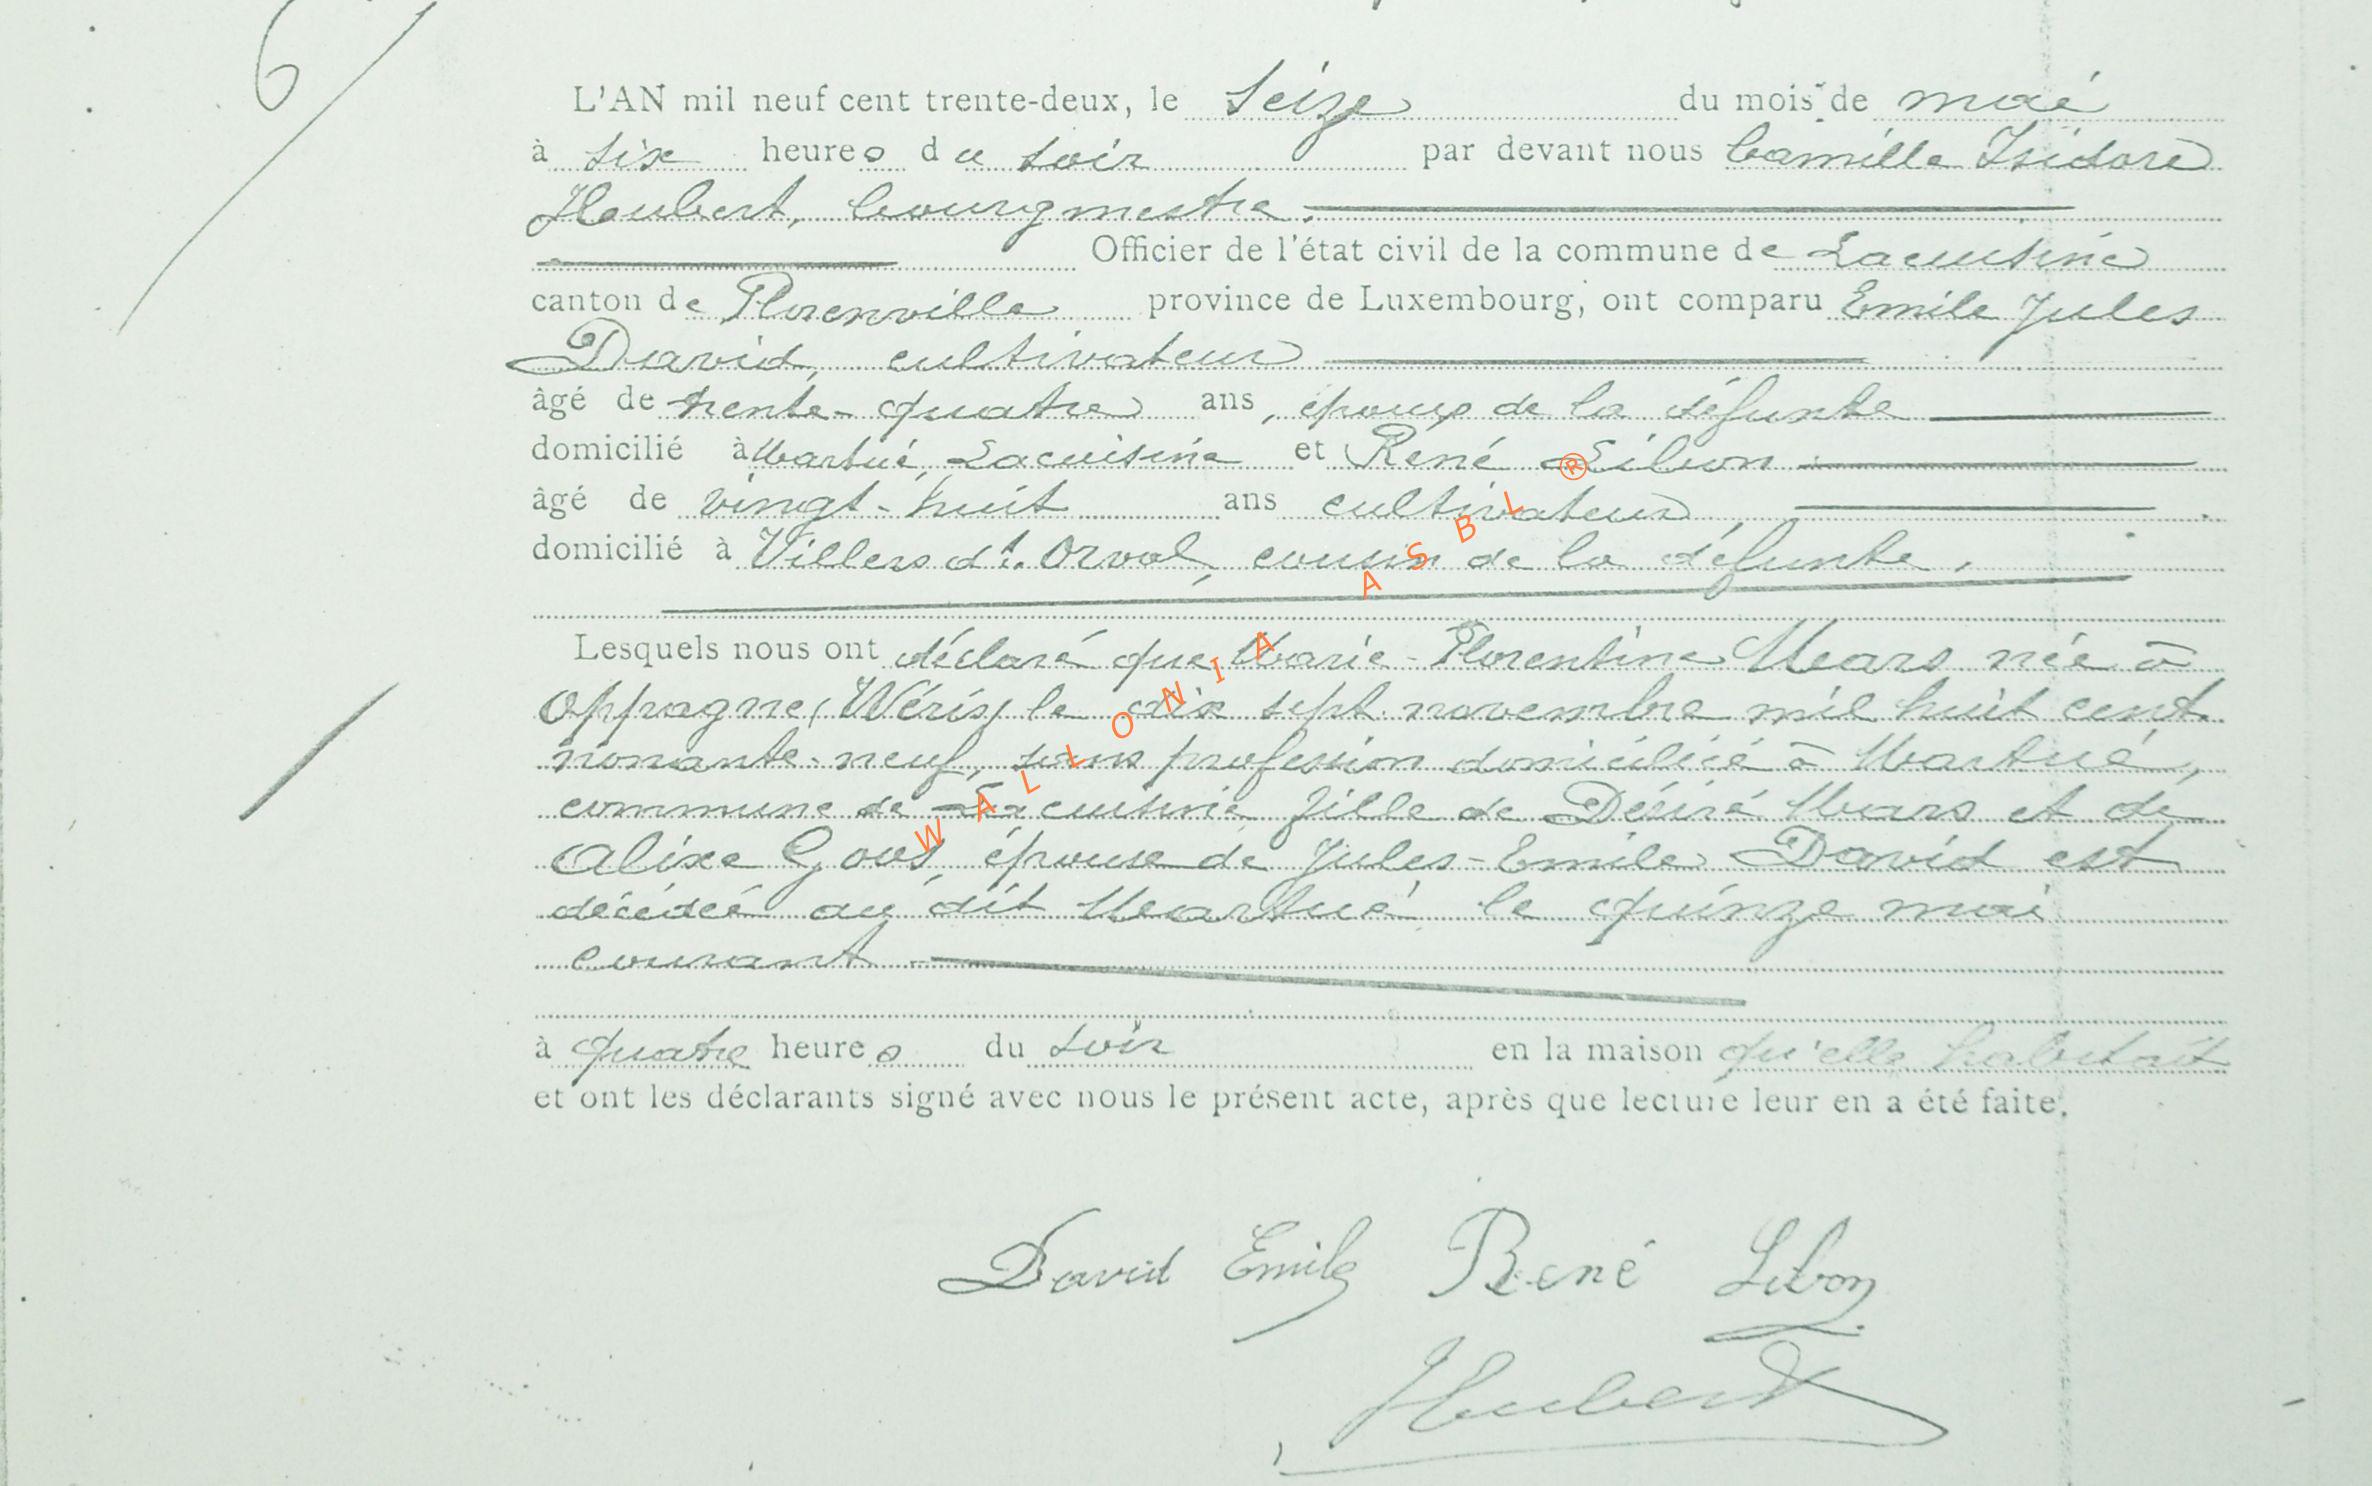 6
L'AN mil neuf cent trente-deux, le seize du mois de mai
à six heures du soir par devant nous Camille Isidore
Hubert, bourgmestre.
Officier de l'état civil de la commune de Lacuisine
canton de Florenville province de Luxembourg, ont comparu Emile Jules
David, cultivateur
âgé de trente-quatre ans, époux de la défunte
domicilié à Martué, Lacuisine et René Libon
âgé de vingt-huit ans cultivateur
domicilié à Villers dt. Orval, cousin de la défunte.
Lesquels nous ont déclaré que Marie-Florentine Mars née à
Oppagne (Wéris) le dix sept novembre mil huit cent
nonante-neuf, sans profession domiciliée à Martué,
commune de Lacuisine fille de Désiré Mars et de
Alixe épouse de Jules-Emile David est
décédée au dit Martué le quinze mai
courant
à quatre heures du soir en la maison qu'elle habitait
et ont les déclarants signé avec nous le présent acte, après que lecture leur en a été faite.
David Emile René Libon
Hubert
WALLONIA ASBL ®